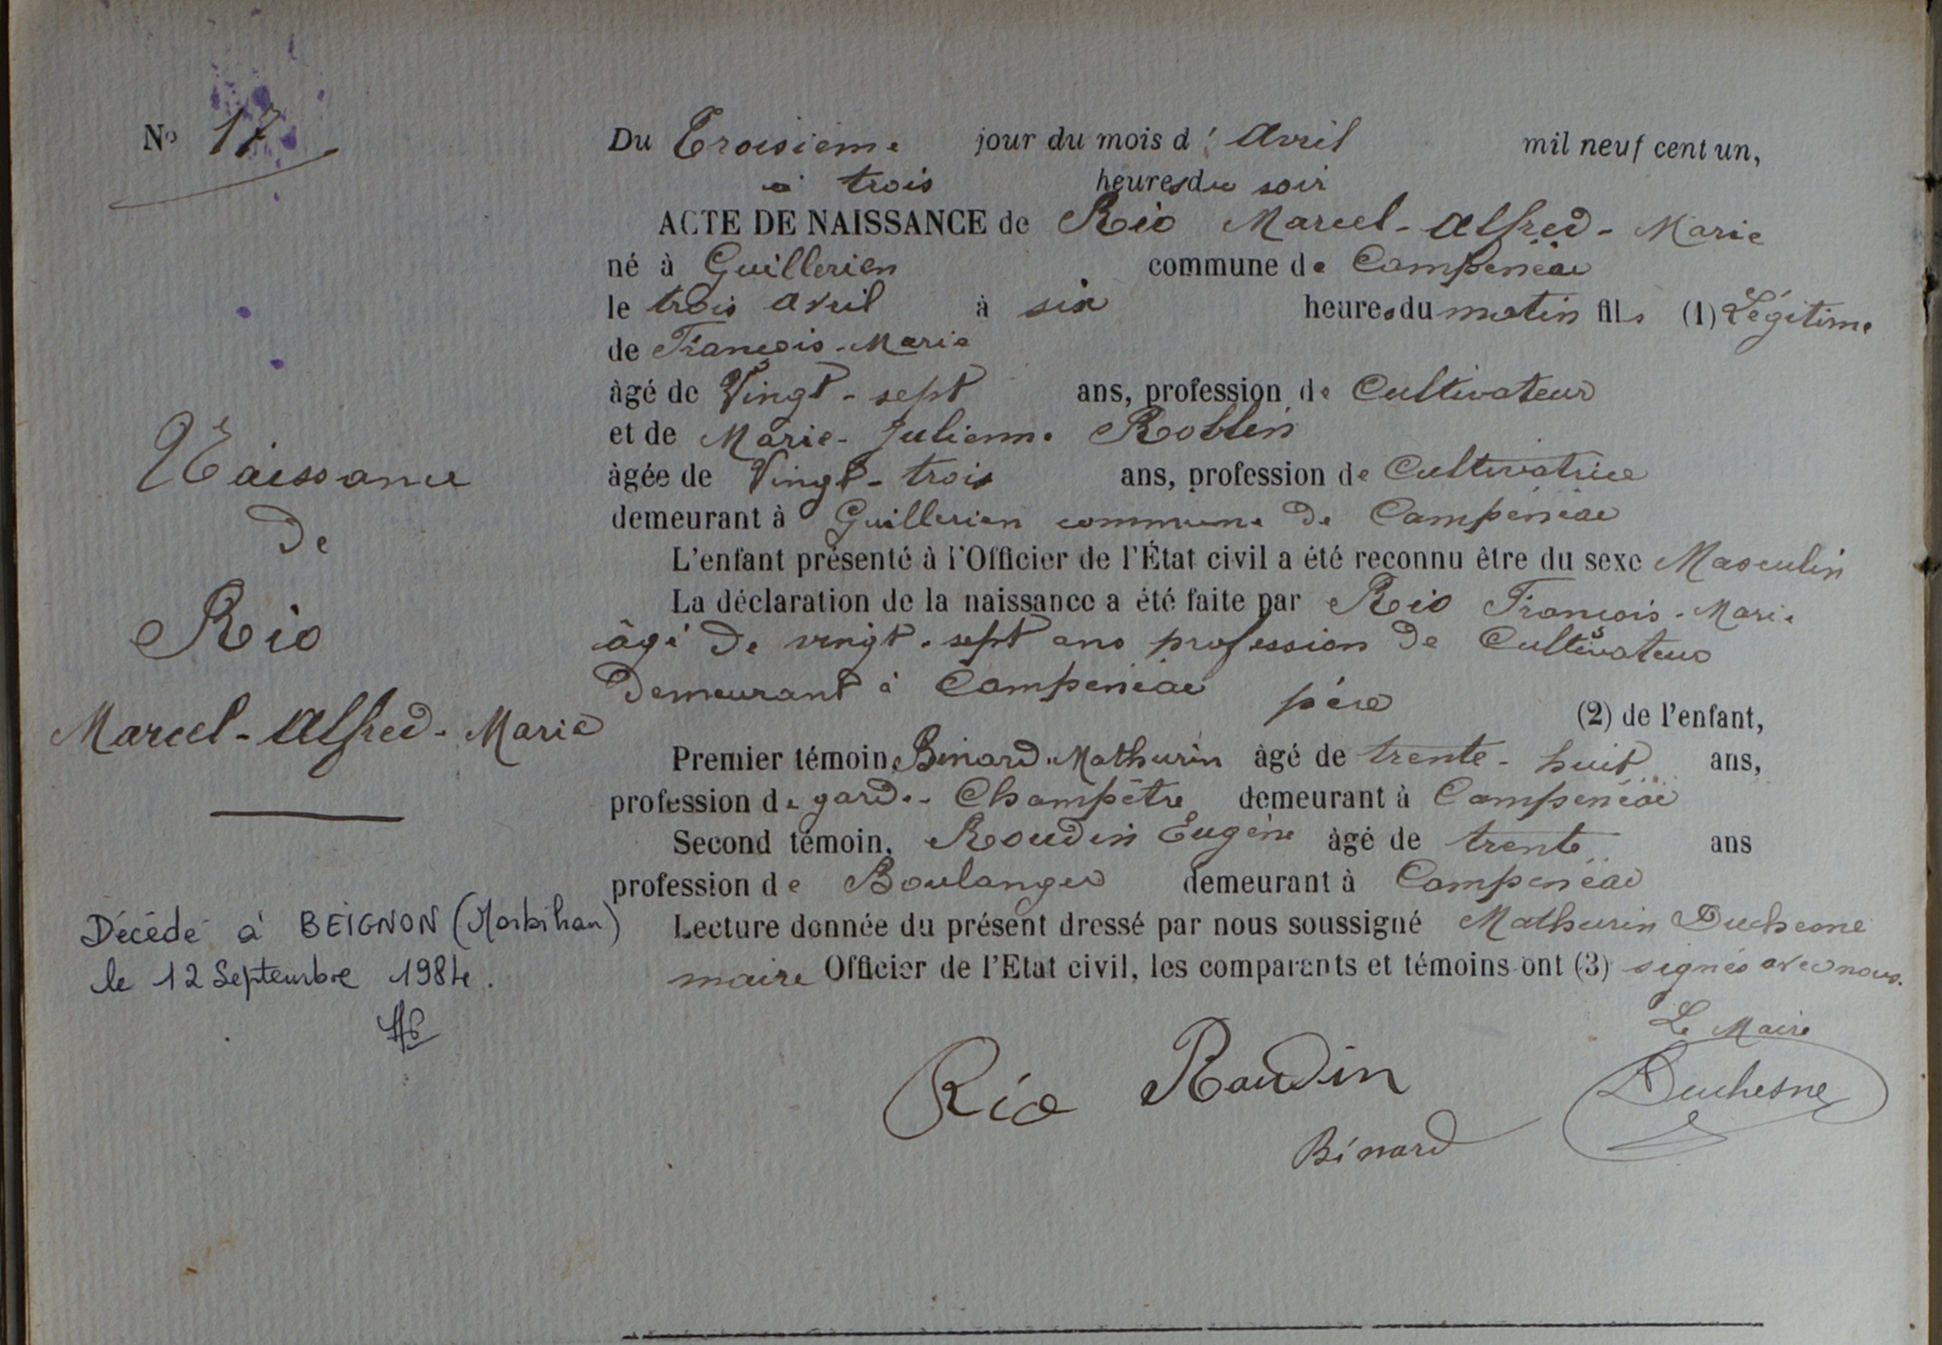 N° 17
Du Troisième jour du mois d'Avril mil neuf cent un,
à trois heures du soir
ACTE DE NAISSANCE de Rio Marcel-Alfred-Marie
né à Guillerien commune de Campénéac
le trois avril à six heures du matin fils (1) Légitime
de François-Marie
âgé de Vingt-sept ans, profession de Cultivateur
et de Marie-Julienne Roblin
âgée de Vingt-trois ans, profession de Cultivatrice
demeurant à Guillerien commune de Campénéac
L'enfant présenté à l'Officier de l'État civil a été reconnu être du sexe Masculin
La déclaration de la naissance a été faite par Rio François-Marie
âgé de vingt-sept ans profession de Cultivateur
demeurant à Campénéac père (2) de l'enfant,
Premier témoin, Binard Mathurin âgé de trente-huit ans,
profession de garde-Champêtre demeurant à Campénéac
Second témoin, Roudin Eugène âgé de trente ans
profession de Boulanger demeurant à Campénéac
Lecture donnée du présent dressé par nous soussigné Mathurin Duchesne
maire Officier de l'Etat civil, les comparants et témoins ont (3) signés avec nous.
Le Maire
Rio Roudin Duchesne
Binard
Naissance
de
Rio
Marcel-Alfred-Marie
Décédé à BEIGNON (Morbihan)
le 12 Septembre 1984.